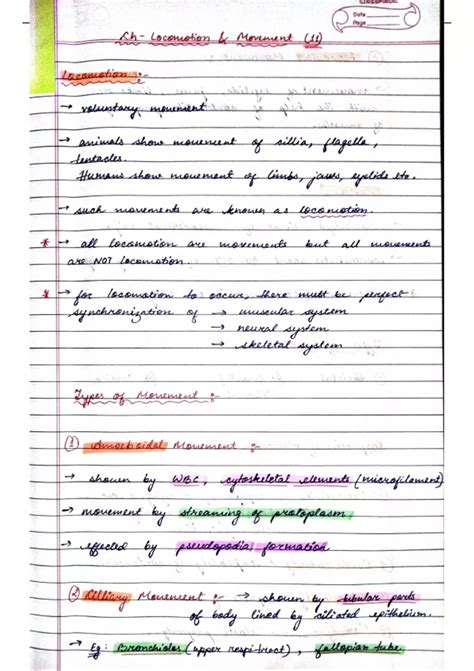 CLASSMATE
Date
Page
Ch- Locomotion & Movement (11)
Locomotion :-
→ voluntary movement
→ animals show movement of cillia, flagella,
tentacles.
Humans show movement of limbs, jaws, eyelids etc.
→ such movements are known as locomotion.
* → all locomotion are movements but all movements
are NOT locomotion.
* → for locomotion to occur, there must be perfect
synchronization of → muscular system
→ neural system
→ skeletal system
Types of Movement :-
① Amoeboidal Movement :-
→ shown by WBC, cytoskeletal elements (microfilament)
→ movement by streaming of protoplasm
→ effected by pseudopodia formation
② Cilliary Movement :- → shown by tubular parts
of body lined by ciliated epithelium.
→ Eg: Bronchioles (upper respi. tract), fallopian tube.